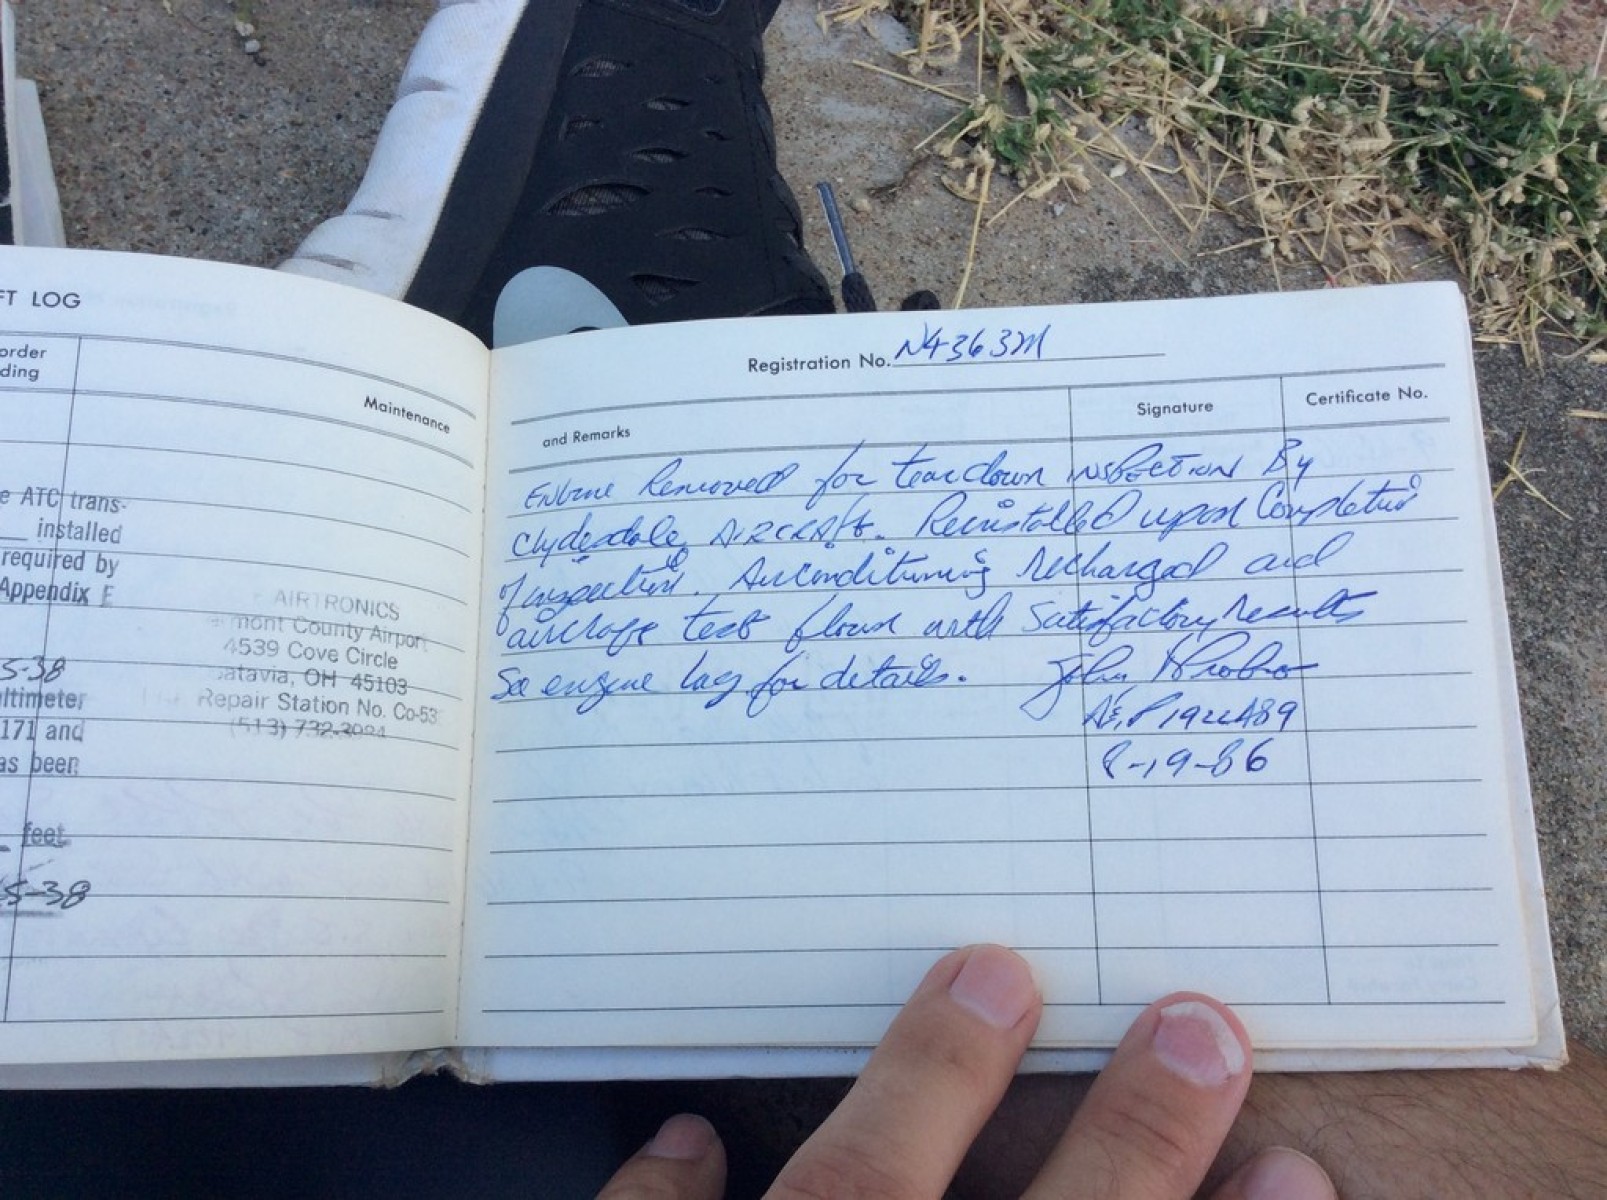 FT LOG
order
ding
Maintenance
e ATC trans-
installed
required by
Appendix E
AIRTRONICS
mont County Airport
4539 Cove Circle
atavia, OH 45103
Repair Station No. Co-53
(513) 732-
5-38
altimeter
171 and
as been
feet.
5-38
Registration No. N4363M
and Remarks
Signature
Certificate No.
Engine Removed for teardown inspection By
Clydesdale Aircraft. Reinstalled upon Completion
of inspection. Airconditioning recharged and
aircraft test flown with Satisfactory results
See engine log for details. John
A&P 1922489
8-19-86